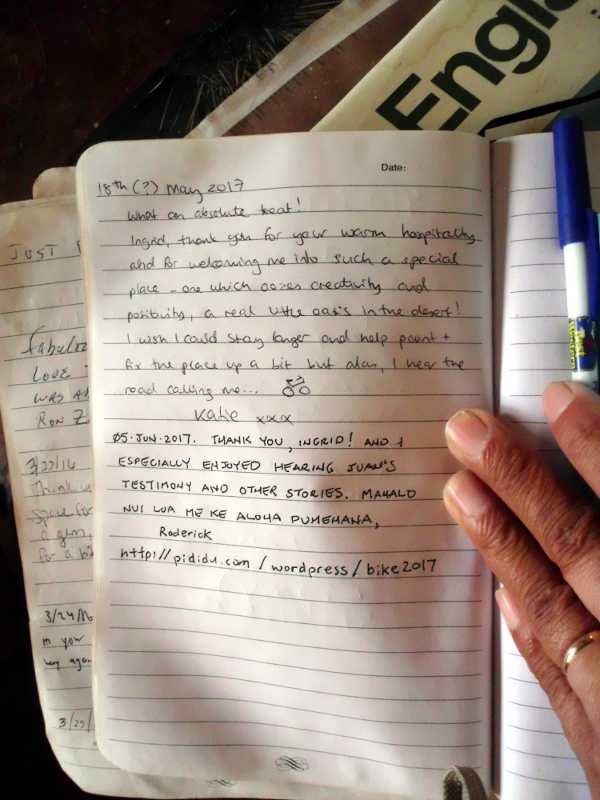 Engla
Date:
18th (?) May 2017
What an absolute treat!
Ingrid, thank you for your warm hospitality
and for welcoming me into such a special
place - one which oozes creativity and
positivity, a real little oasis in the desert!
I wish I could stay longer and help paint +
fix the place up a bit but alas, I hear the
road calling me...
Katie xxx
05·JUN·2017. THANK YOU, INGRID! AND I
ESPECIALLY ENJOYED HEARING JUAN'S
TESTIMONY AND OTHER STORIES. MAHALO
NUI LOA ME KE ALOHA PUMEHANA,
Roderick
http://pididu.com/wordpress/bike2017
JUST
fabulo
LOVE
WAS A
RON Z
3/23/16
Think
Space for
a gem,
for a bi
3/24/16
in your
hey again
3/25/